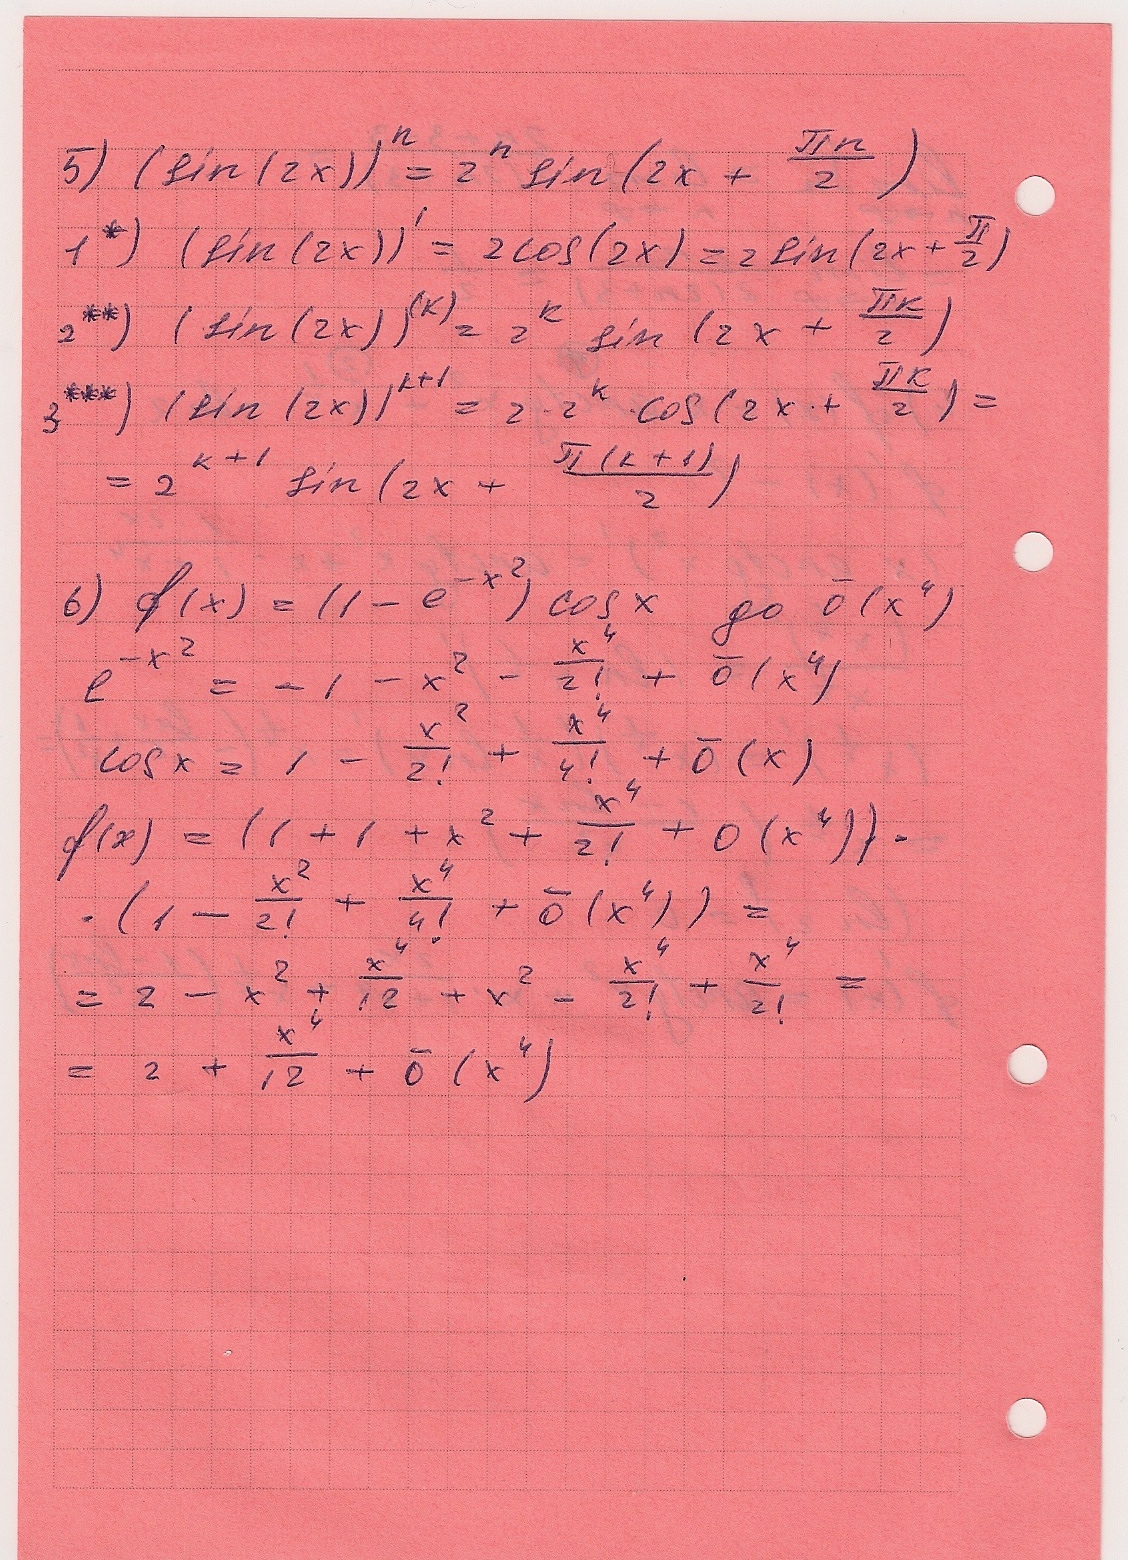 5) (sin(2x))ⁿ = 2ⁿ sin(2x + πn/2)
1*) (sin(2x))' = 2cos(2x) = 2sin(2x + π/2)
2**) (sin(2x))⁽ᴷ⁾ = 2ᴷ sin(2x + πK/2)
3***) (sin(2x))ᴷ⁺¹ = 2·2ᴷ·cos(2x + πK/2) =
= 2ᴷ⁺¹ sin(2x + π(K+1)/2)
6) f(x) = (1 - e^(-x²)) cos x до ō(x⁴)
e^(-x²) = -1 - x² - x⁴/2! + ō(x⁴)
cos x = 1 - x²/2! + x⁴/4! + ō(x)
f(x) = (1 + 1 + x² + x⁴/2! + 0(x⁴))·
·(1 - x²/2! + x⁴/4! + ō(x⁴)) =
= 2 - x² + x⁴/12 + x² - x⁴/2! + x⁴/2! =
= 2 + x⁴/12 + ō(x⁴)